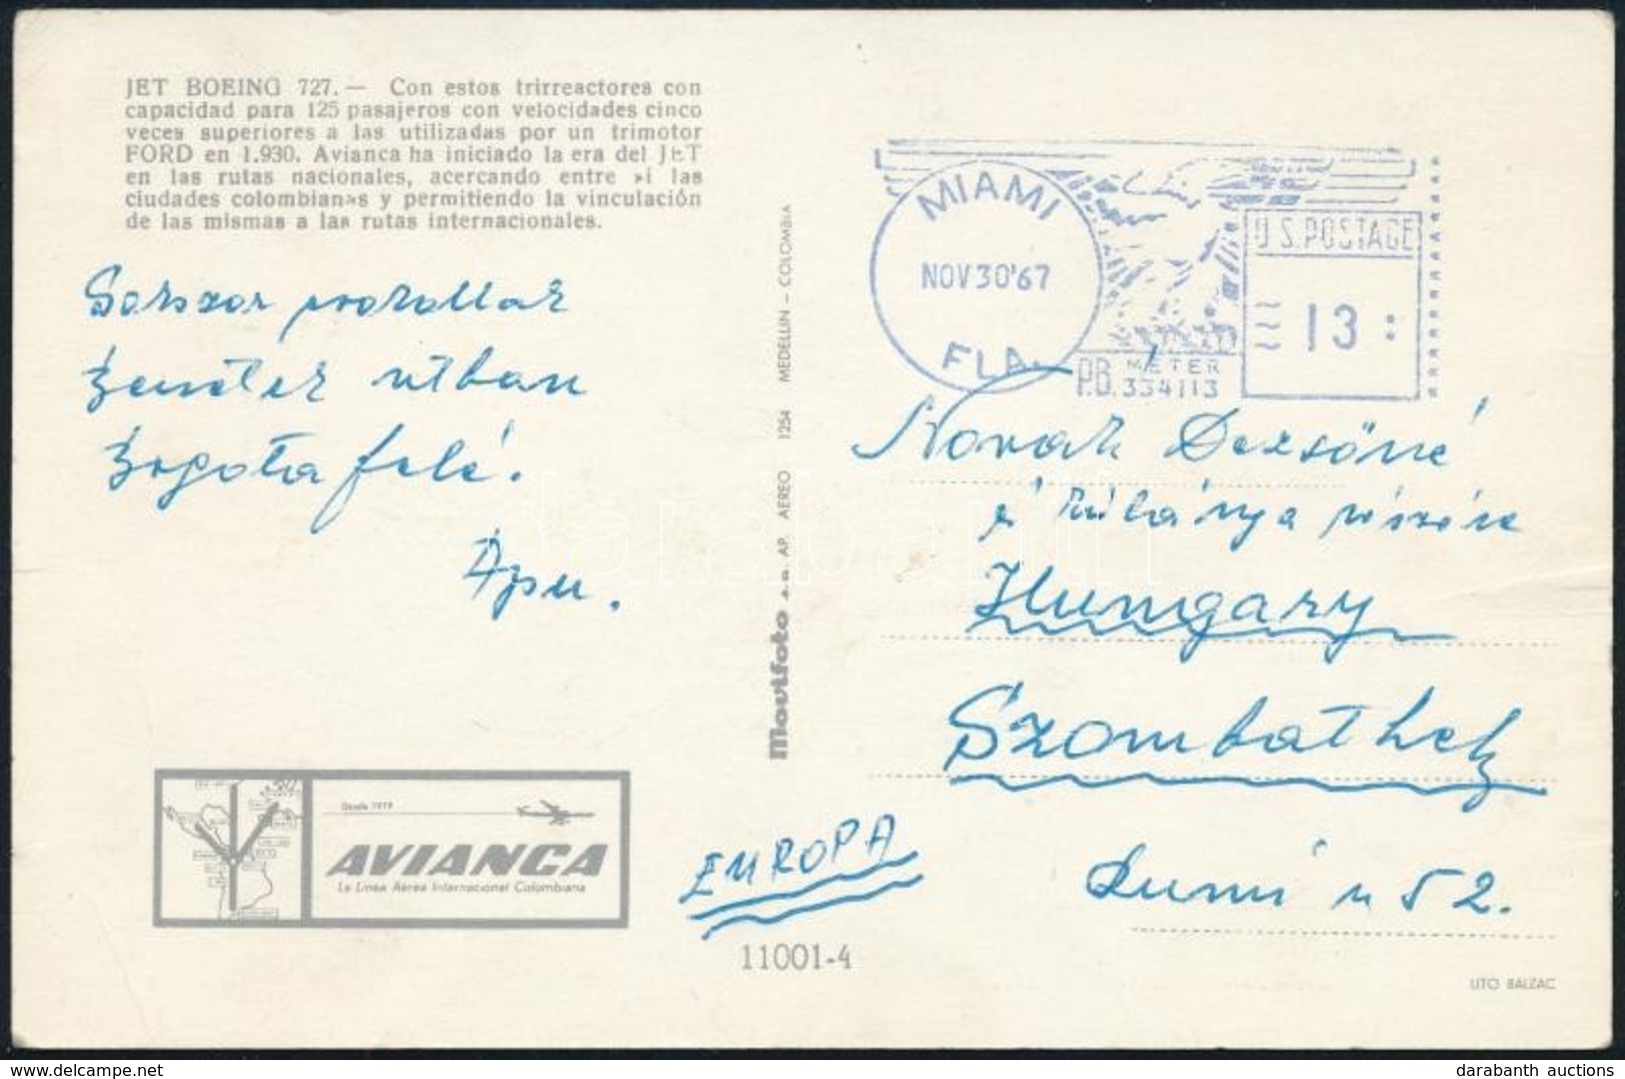 JET BOEING 727.— Con estos trirreactores con
capacidad para 125 pasajeros con velocidades cinco
veces superiores a las utilizadas por un trimotor
FORD en 1.930. Avianca ha iniciado la era del JET
en las rutas nacionales, acercando entre si las
ciudades colombianas y permitiendo la vinculación
de las mismas a las rutas internacionales.
MIAMI
NOV 30 '67
FLA.
U.S. POSTAGE
13
P.B. METER
334113
útban
Bogota felé.
Apu.
Novák Dezsőné
és leánya részére
Hungary
Szombathely
u 52.
EUROPA
Movifoto s.a. AP. AEREO 1254 MEDELLIN - COLOMBIA
Desde 1919
AVIANCA
La Línea Aérea Internacional Colombiana
11001-4
LITO BALZAC
darabanth
darabanth auctions